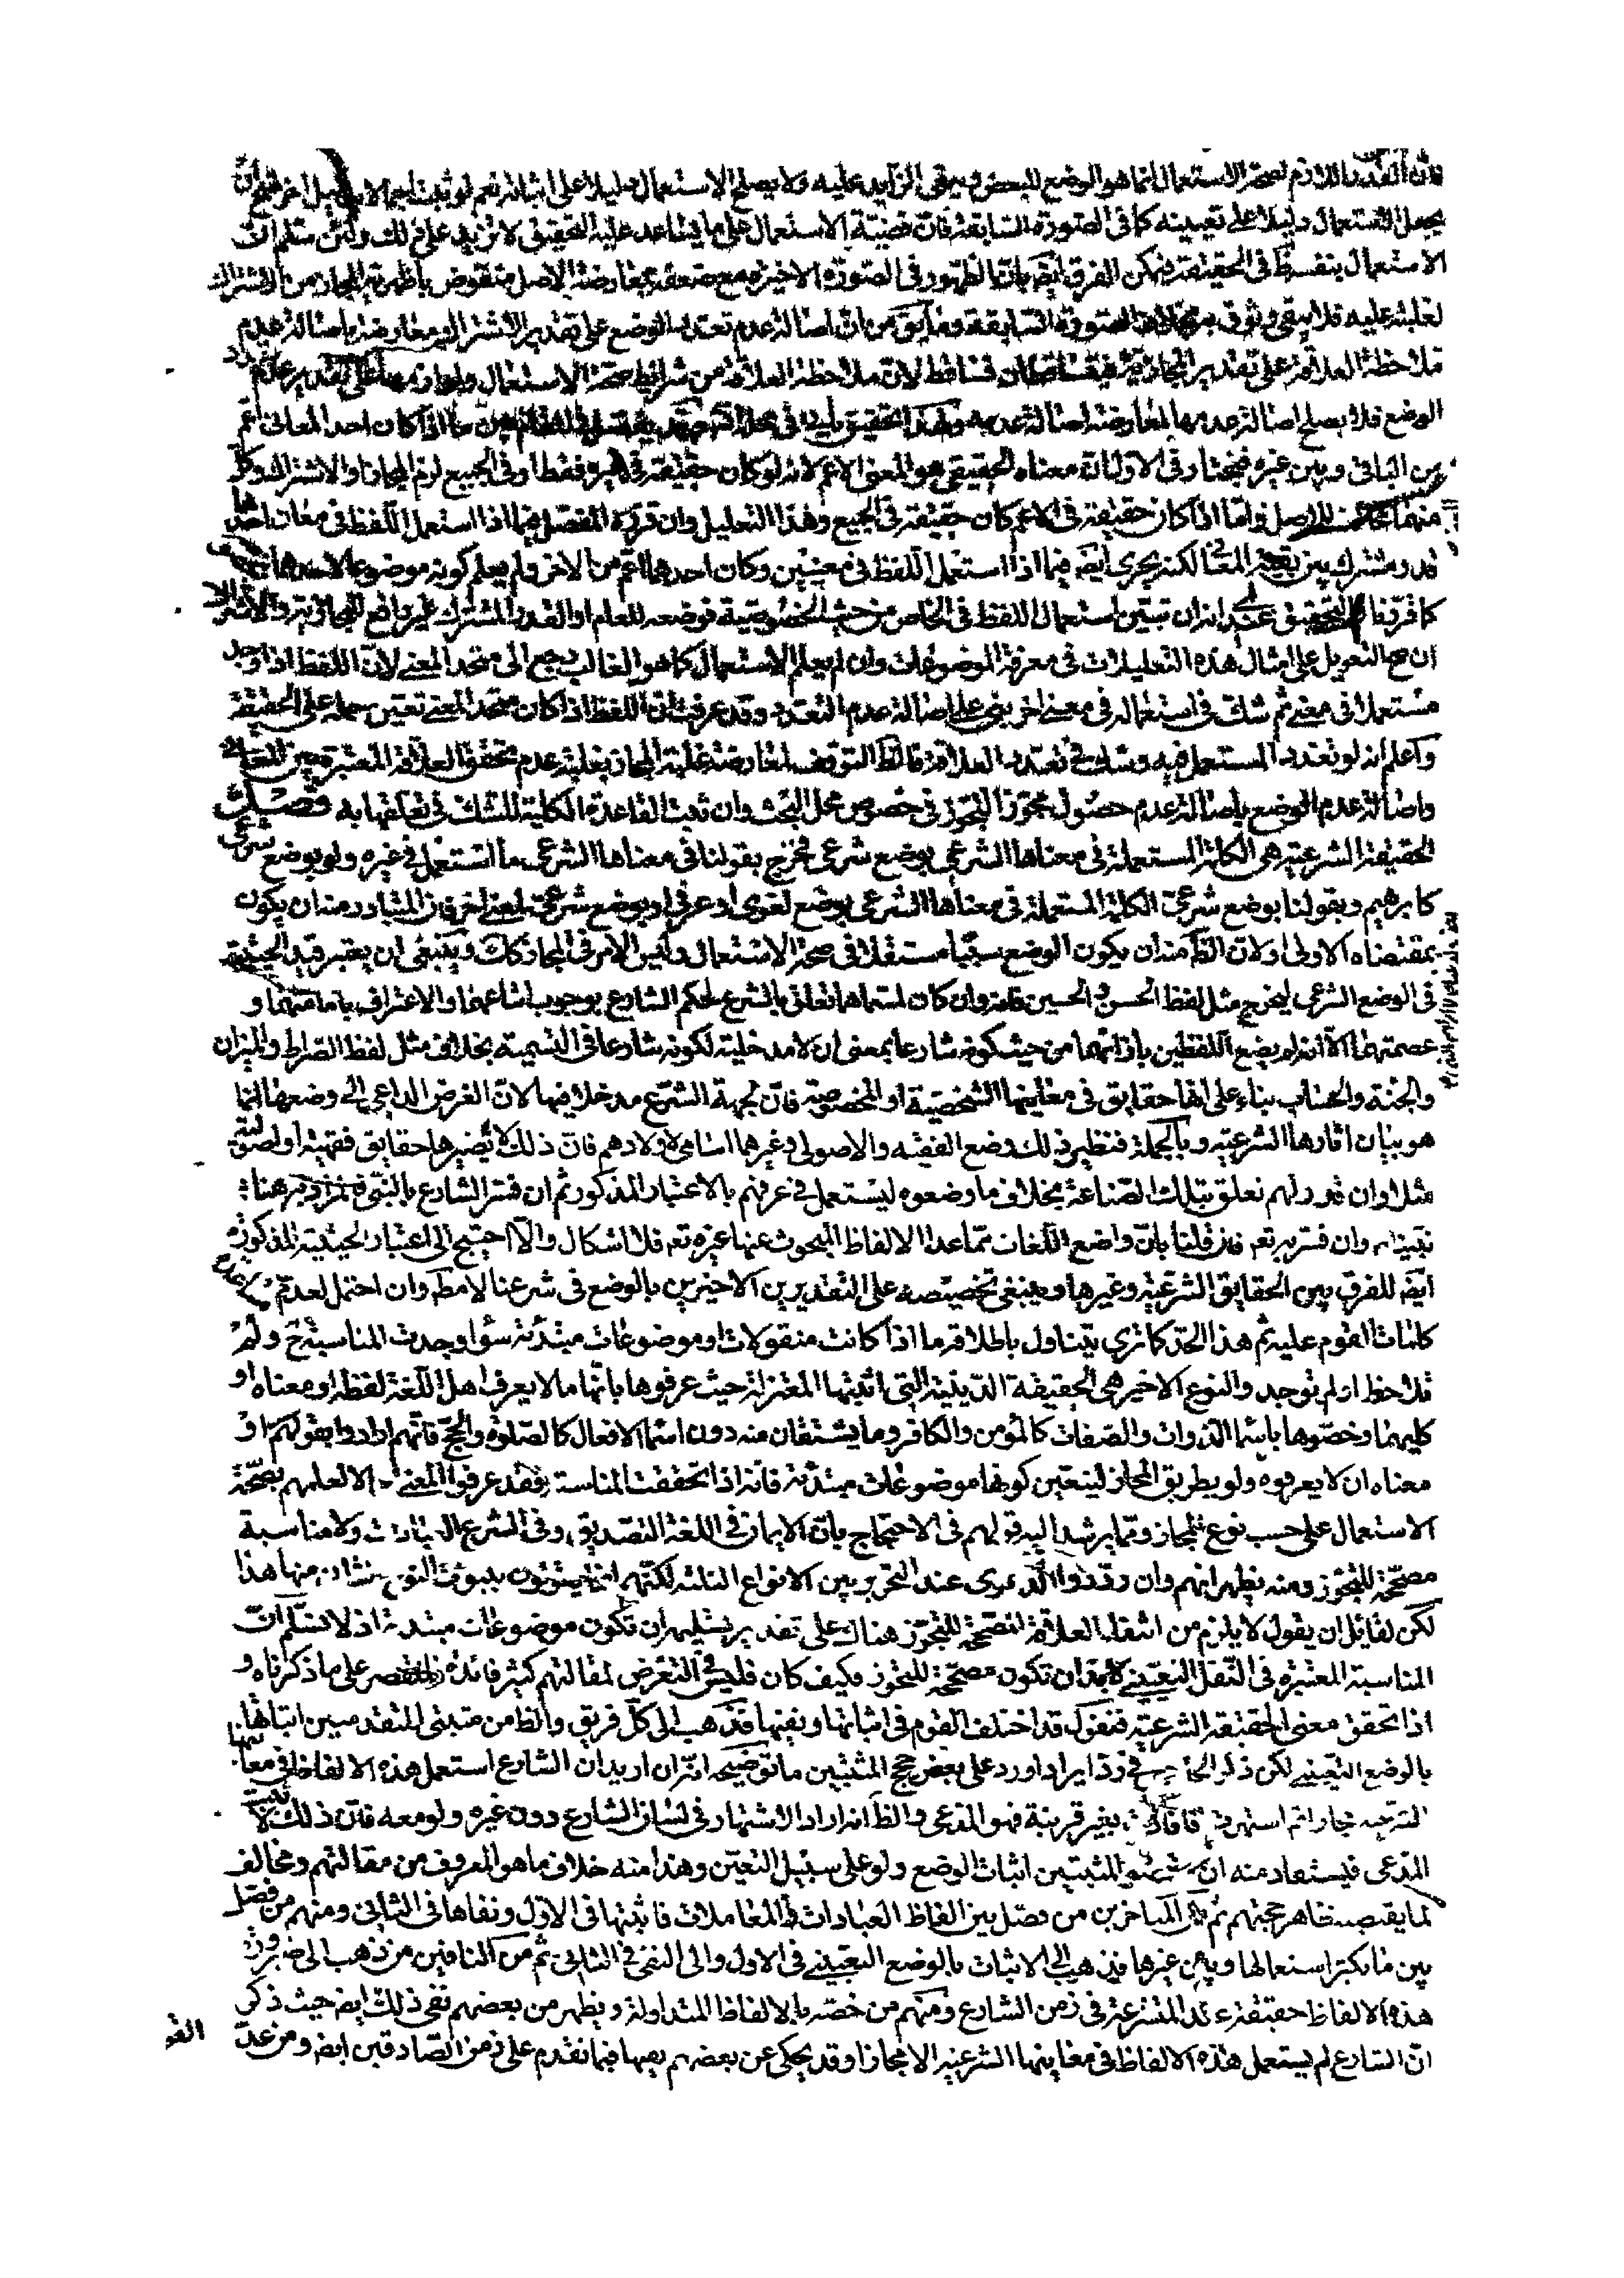 فان القدر اللازم لصحة الاستعمال انما هو الوضع للبعض ويبقى الزايد عليه ولا يصلح الاستعمال دليلا على اثباته نعم لو ثبت اجمالا بدليل اخر فصح ان
يجعل الاستعمال دليلا على تعيينه كما فى الصورة السابقة فان قضيّة الاستعمال على ما يساعد عليه التحقيق لا تزيد على ذلك ولئن سلم ان
الاستعمال بنفسه فى الحقيقة فيمكن الفرق ايضا بان الظهور فى الصورة الاخيرة مع ضعفه بمعارضة الاصل منقوض باظهرية المجاز من الاشتراك
لغلبته عليه فلا يبقى وثوق به بخلاف الصورة السابقة وما يق من ان اصالة عدم تعدد الوضع على تقدير الاشتراك معارضة باصالة عدم
ملاحظة العلاقة على تقدير المجازية فيتساقطان فساقط لان ملاحظة العلاقة من شرائط صحة الاستعمال ولوازمها على تقدير عدم تعدد
الوضع فلا يصلح اصالة عدمها لمعارضة اصالة عدمه وهذا التحقيق يفصل بين ما اذا كان احد المعانى اعم
من الباقى وبين غيره فيختار فى الاول ان معناه الحقيقى هو المعنى الاعم لانه لو كان حقيقة فى غيره فقط او فى الجميع لزم المجاز او الاشتراك وكل
منهما على خلاف الاصل واما اذا كان حقيقة فى الاعم كان حقيقة فى الجميع وهذا التعليل وان قرره المفصل فيما اذا استعمل اللفظ فى معان احدها
قدر مشترك بين بقية المعانى لكنه يجرى ايضا فيما اذا استعمل اللفظ فى معنيين وكان احدهما اعم من الاخر ولم يعلم كونه موضوعا لاحدهما
كما فرقنا والتحقيق عندى انه ان تبين استعمال اللفظ فى الخاص من حيث الخصوصية فوضعه للعام او القدر المشترك غير رافع للمجاز او الاشتراك
ان صح التعويل على امثال هذه التعليلات فى معرفة الموضوعات وان لم يعلم الاستعمال كما هو الغالب رجع الى متحد المعنى لان اللفظ اذا وجد
مستعملا فى معنى ثم شك فى استعماله فى معنى اخر بنى على اصالة عدم التعدد وقد عرفت ان اللفظ اذا كان متحد المعنى تعين حمله على الحقيقة
واعلم انه لو تعدد المستعمل فيه وشك فى تعدد العلاقة فالظ التوقف لمعارضة غلبة المجاز بغلبة عدم تحقق العلاقة المعتبرة بين المعانى
واصالة عدم الوضع باصالة عدم حصول مجوز التجوز فى خصوص محل البحث وان ثبت القاعدة الكلية للشك فى تعلقها به فصل
الحقيقة الشرعية هى الكلمة المستعملة فى معناها الشرعى بوضع شرعى فخرج بقولنا فى معناها الشرعى ما استعمل فى غيره ولو بوضع شرعى
كابرهيم وبقولنا بوضع شرعى الكلمة المستعملة فى معناها الشرعى بوضع لغوى او عرفى او بوضع شرعى لمعنى اخر فان المتبادر منه ان يكون
بمقتضاه الاولى او لان الظ منه ان يكون الوضع سببا مستقلا فى صحة الاستعمال وليس الامر فى المجاز كك وينبغى ان يعتبر قيد الحيثية
فى الوضع الشرعى ليخرج مثل لفظ الحسن والحسين فانه وان كان لمسماهما تعلق بالشرع لحكم الشارع بوجوب اتباعهما والاعتراف بامامتهما و
عصمتهما الا انه لم يضع اللفظين بازائهما من حيث كونه شارعا بمعنى ان لا مدخلية لكونه شارعا فى التسمية بخلاف مثل لفظ الصراط والميزان
والجنة والحساب بناء على انها حقايق فى معانيها الشخصية او المخصوصة فان لجهة الشرع مدخلا فيها لان الغرض الداعى الى وضعها انما
هو بيان اثارها الشرعية وبالجملة فنظير ذلك وضع الفقيه والاصولى وغيرهما اسامى لاولادهم فان ذلك لا يصيرها حقايق فقهية او اصولية
مثلا وان قدر لهم تعلق بتلك الصناعة بخلاف ما وضعوه ليستعمل فى عرفهم بالاعتبار المذكور ثم ان فسر الشارع بالنبى ص فالمراد به هنا
نبينا ص وان فسر به تع فان قلنا بان واضع اللغات مما عدا الالفاظ المبحوث عنها غيره تع فلا اشكال والا احتيج الى اعتبار الحيثية المذكورة
ايضا للفرق بين الحقايق الشرعية وغيرها وينبغى تخصيصه على التقديرين الاخيرين بالوضع فى شرعنا لا مطلقا وان احتمل لعدم مساعدة
كلمات القوم عليه ثم هذا الحد كما ترى يتناول باطلاقه ما اذا كانت منقولات او موضوعات مبتدئة سواء وجدت المناسبة ح ولم
تلاحظ او لم توجد والنوع الاخير هى الحقيقة الدينية التى اثبتها المعتزلة حيث عرفوها بانها ما لا يعرف اهل اللغة لفظه او معناه او
كليهما وخصوها باسماء الذوات والصفات كالمؤمن والكافر وما يشتقان منه دون اسماء الافعال كالصلوة والحج فانهم ارادوا بقولهم او
معناه ان لا يعرفوه ولو بطريق المجاز ليتعين كونها موضوعات مبتدئة فانه اذا تحققت المناسبة فقد عرفوا المعنى لعلمهم بصحة
الاستعمال على حسب نوع المجاز ومما يرشد اليه قولهم فى الاحتجاج بان الايمان فى اللغة التصديق وفى الشرع العبادات ولا مناسبة
مصححة للتجوز ومنه يظهر انهم وان رددوا الدعوى عند التحرير بين الانواع الثلثة لكنهم انما يثبتون نوعين منها هذا
لكن لقائل ان يقول لا يلزم من انتفاء العلاقة المصححة للتجوز هناك على تقدير تسليمه ان تكون موضوعات مبتدئة اذ لا نسلم ان
المناسبة المعتبرة فى النقل التعيينى لا بد ان تكون مصححة للتجوز وكيف كان فليس فى التعرض لمقالتهم كثير فائدة فلنقتصر على ما ذكرناه و
اذا تحقق معنى الحقيقة الشرعية فنقول قد اختلف القوم فى اثباتها ونفيها فذهب الى كل فريق والظ من مثبتى المتقدمين اثباتها
بالوضع التعيينى لكن ذكر الحاجبى فى رد ايراد اورد على بعض حجج المثبتين ما توضيحه انه ان اريد ان الشارع استعمل هذه الالفاظ فى معانيها
الشرعية مجازا ثم اشتهرت فافادت بغير قرينة فهو المدعى والظ انه اراد الاشتهار فى لسان الشارع دون غيره ولو معه فان ذلك لا يثبت
المدعى فيستفاد منه ان مدعى المثبتين اثبات الوضع ولو على سبيل التعين وهذا منه خلاف ما هو المعروف من مقالتهم ومخالف
لما يقتضيه ظاهر حجتهم ثم من المتاخرين من فصل بين الفاظ العبادات والمعاملات فاثبتها فى الاول ونفاها فى الثانى ومنهم من فصل
بين ما يكثر استعمالها وبين غيرها فذهب الى الاثبات بالوضع التعيينى فى الاول والى النفى فى الثانى ثم من النافين من ذهب الى صيرورة
هذه الالفاظ حقيقة عند المتشرعة فى زمن الشارع ومنهم من خصه بالالفاظ المتداولة ويظهر من بعضهم نفى ذلك ايضا حيث ذكر
ان الشارع لم يستعمل هذه الالفاظ فى معانيها الشرعية الا مجازا وقد يحكى عن بعضهم نفيها فيما تقدم على زمن الصادقين ايضا ومن عد